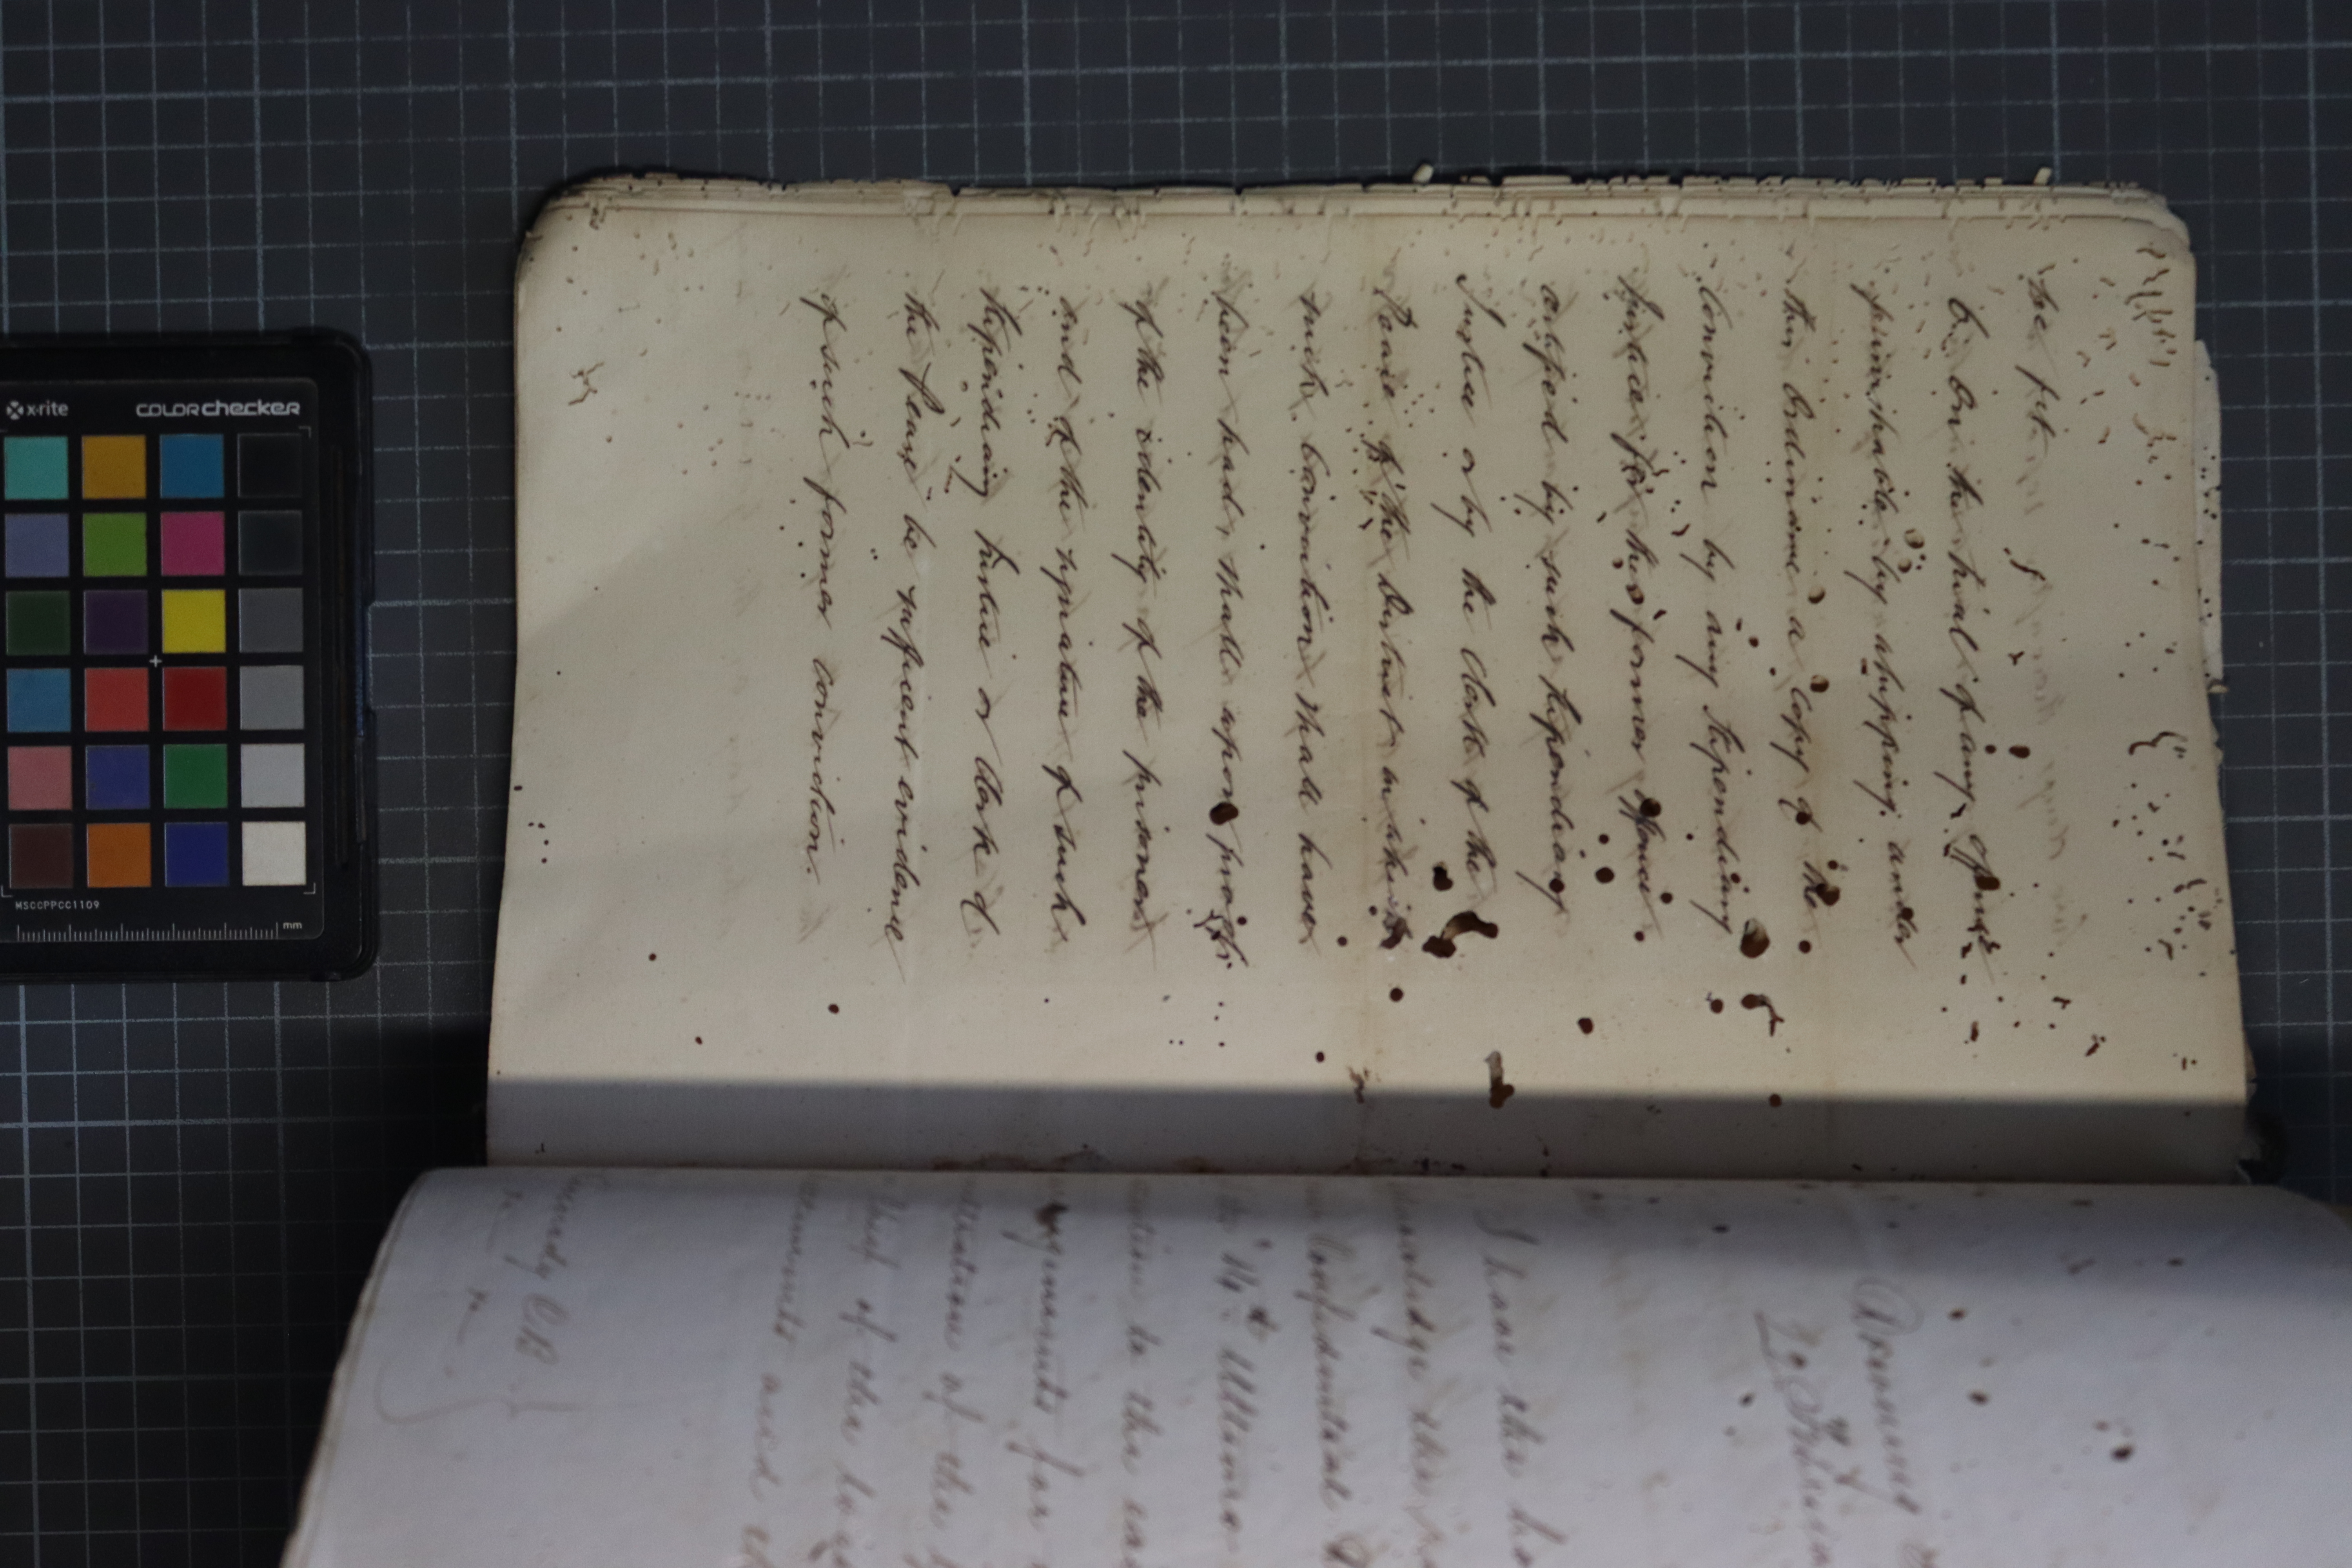 be fit.
6. On the trial of any offence
punishable by whipping under
this Ordinance a Copy of the
Conviction by any Stipendiary
Justice for his former offence
certified by such Stipendiary
Justice or by the Clerk of the
Peace of the District in which
such Conviction shall have
been had, shall upon proof
of the identity of the prisoner
and of the signature of such
Stipendiary Justice or Clerk of
the Peace be sufficient evidence
of such former conviction.
I have the ho
Confidential
14th Ultimo
for
of the
of the
and
x-rite colorchecker
MSCCPPCC1109
mm